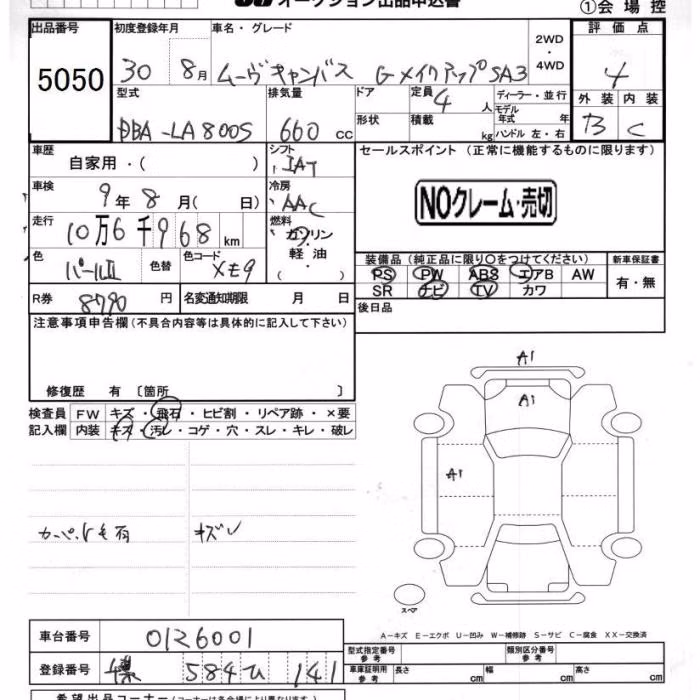 オークション出品申込書
①会場控
出品番号 初度登録年月 車名・グレード 2WD・4WD 評価点
5050 30 8月 ムーヴキャンバス GメイクアップSA3 4
型式 排気量 ドア 定員 4人 ディーラー・並行 外装 内装
DBA-LA800S 660 cc 形状 積載 kg モデル年式 年 ハンドル 左・右 B C
車歴 自家用・( ) シフト IAT セールスポイント (正常に機能するものに限ります)
車検 9年 8月( 日) 冷房 AAC NOクレーム・売切
走行 10万6千968km 燃料 ガソリン・軽油・( )
色 パールII 色替 色コード
装備品 (純正品に限り○をつけてください) 新車保証書
PS PW ABS エアB AW 有・無
SR ナビ TV カワ
R券 8790円 名変通知期限 月 日 後日品
注意事項申告欄 (不具合内容等は具体的に記入して下さい)
修復歴 有 〔箇所 〕
検査員 FW キズ・飛石・ヒビ割・リペア跡・×要
記入欄 内装 キズ・汚レ・コゲ・穴・スレ・キレ・破レ
A1
A1
A1
キズレ
スペア
A-キズ E-エクボ U-凹み W-補修跡 S-サビ C-腐食 XX-交換済
車台番号 0126001
型式指定番号 参考 類別区分番号 参考
登録番号 584 ひ 141
車庫証明用 参考 長さ cm 幅 cm 高さ cm
希望出品コーナー(コーナーは各会場により異なります)